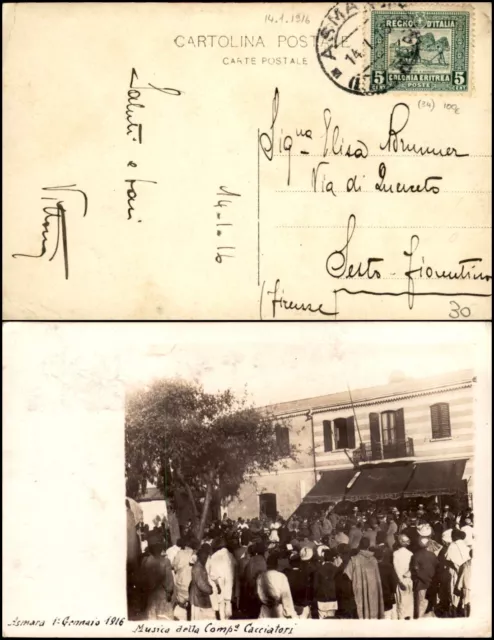 14.1.1916
CARTOLINA POSTALE
CARTE POSTALE
ASMARA
14.1.
REGNO D'ITALIA
5 CENT
5 CENT
COLONIA ERITREA
POSTE
(34) 100
Saluti e baci
Vittorio
14-1-16
Signa Elisa Brunner
Via di Querceto
Sesto-Fiorentino
(Firenze)
30
Asmara 1º Gennaio 1916
Musica della Compª Cacciatori